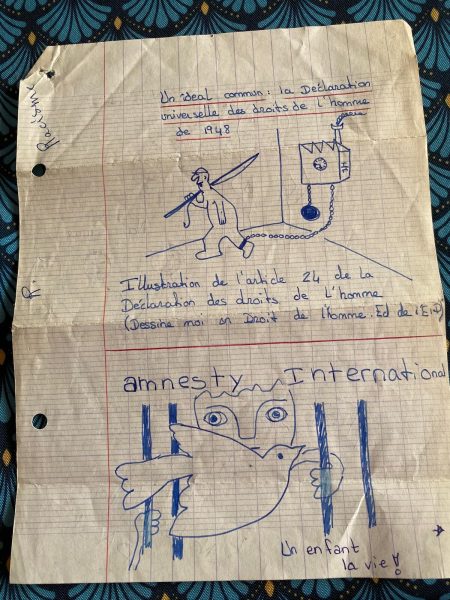 Racisme
Un idéal commun : la Déclaration
universelle des droits de l'homme
de 1948
Illustration de l'article 24 de la
Déclaration des droits de l'homme
(Dessine moi un Droit de l'homme. Ed de
amnesty International
Un enfant
la vie !